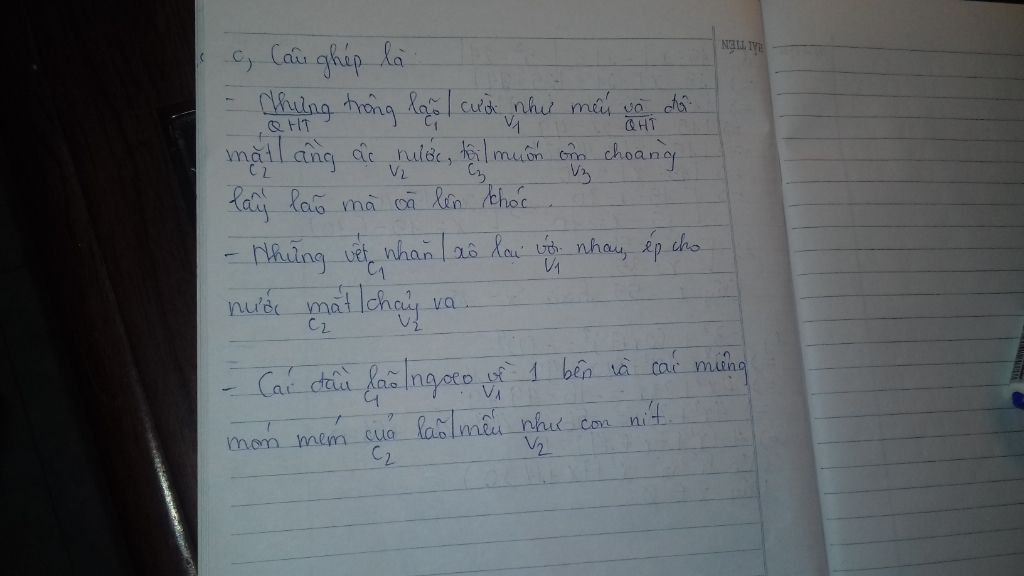 c, Câu ghép là
BÀI TIẾN
- Nhưng trông lão | cười như mếu và đôi
QHT C1 V1 QHT
mắt | ầng ậc nước, tôi | muốn ôm choàng
C2 V2 C3 V3
lấy lão mà oà lên khóc.
- Những vết nhăn | xô lại với nhau, ép cho
C1 V1
nước mắt | chảy va.
C2 V2
- Cái đầu lão | ngoẹo về 1 bên và cái miệng
C1 V1
móm mém của lão | mếu như con nít.
C2 V2